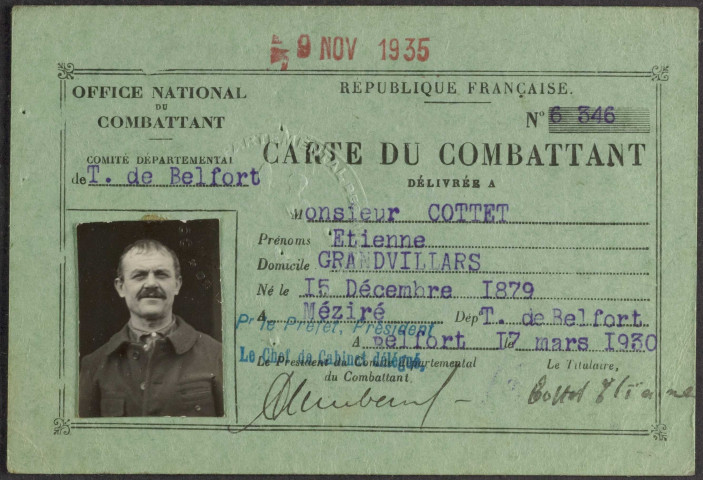 9 NOV 1935
OFFICE NATIONAL
DU
COMBATTANT
COMITÉ DÉPARTEMENTAL
de T. de Belfort
RÉPUBLIQUE FRANÇAISE.
N° 6 346
CARTE DU COMBATTANT
DÉLIVRÉE A
Monsieur COTTET
Prénoms Etienne
Domicile GRANDVILLARS
Né le I5 Décembre I879
A Méziré Dép T. de Belfort
Pr le Préfet, Président
A Belfort le I7 mars I930
Le Chef de Cabinet délégué,
Le Président du Comité Départemental
du Combattant
Le Titulaire,
Cottet Etienne